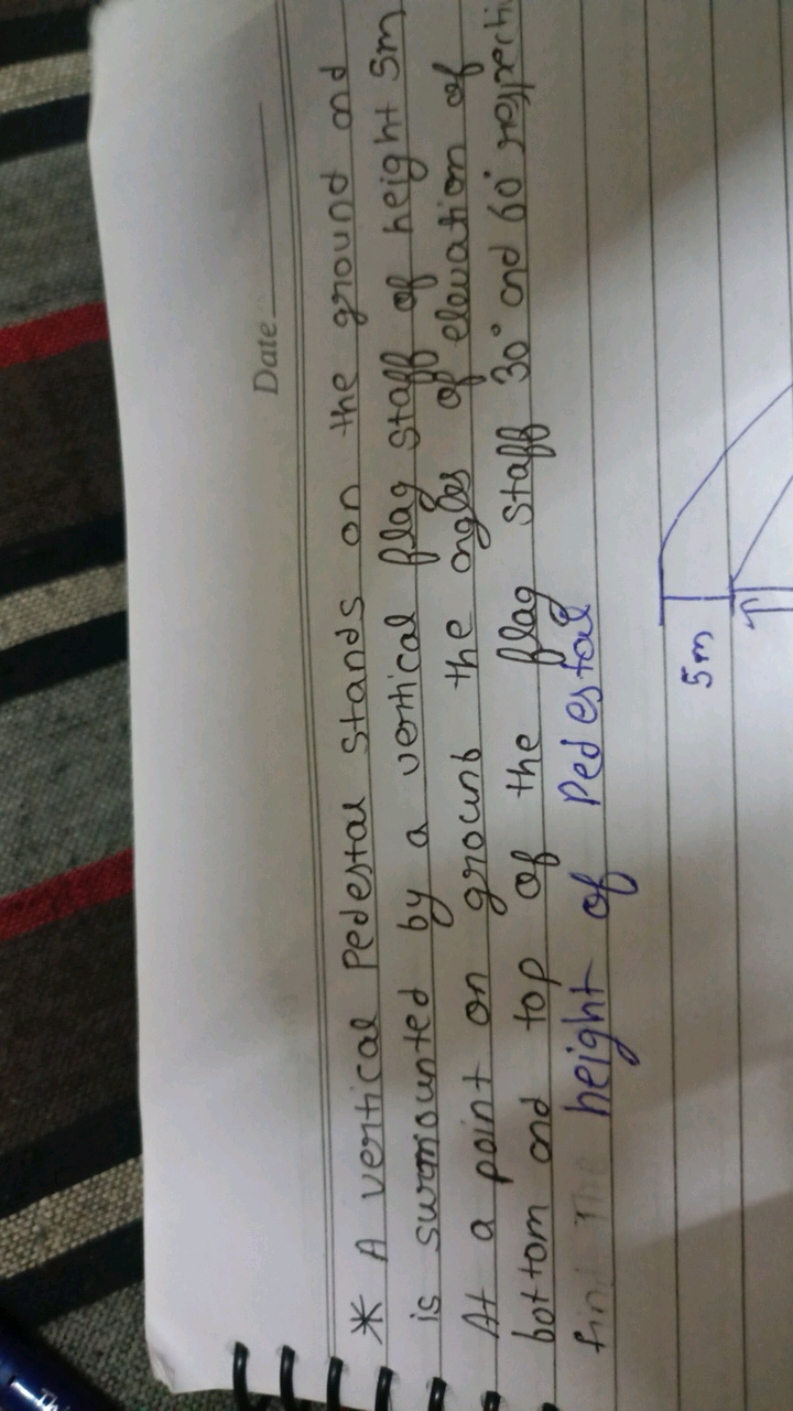 Date
* A vertical Pedestal stands on the ground and
is surmounted by a vertical flag staff of height 5m
At a point on grounb the angles of elevation of
bottom and top of the flag staff 30° and 60°
find The height of Pedestal
5m